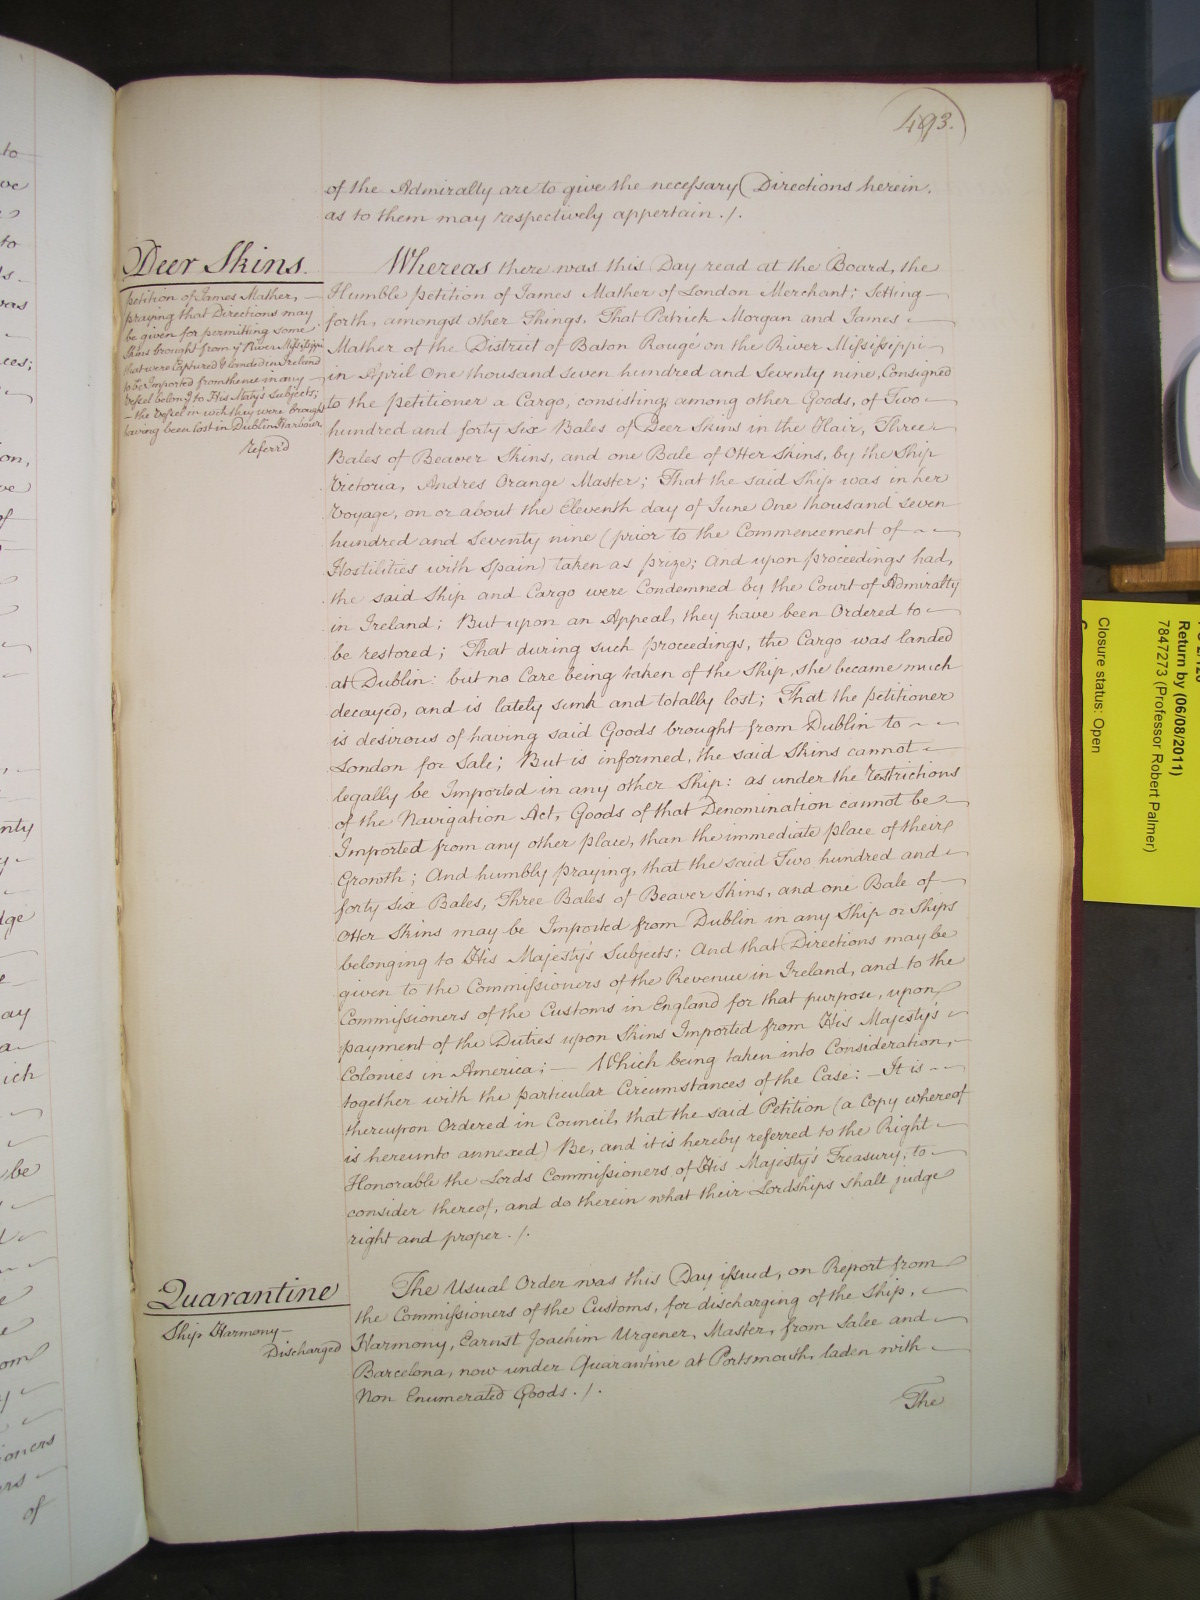 493.
of the Admiralty are to give the necessary Directions herein.
as to them may respectively appertain ./.
Deer Skins.
petition of James Mather, —
praying that Directions may
be given for permitting some
Skins brought from ye River Mississippi
that were Captured & landed in Ireland
to be Imported from thence in any —
Vessel belong.g to His Maty's Subjects;
— the Vessel in wch they were brought
having been lost in Dublin Harbour,
Referr'd
Whereas there was this Day read at the Board, the
Humble petition of James Mather of London Merchant; Setting —
forth, amongst other Things, That Patrick Morgan and James —
Mather of the District of Baton Rougé on the River Mississippi —
in April One thousand seven hundred and Seventy nine, Consigned
to the petitioner a Cargo, consisting among other Goods, of Two —
hundred and forty Six Bales of Deer Skins in the Hair, Three
Bales of Beaver Skins, and one Bale of Otter Skins, by the Ship
Victoria, Andres Orange Master; That the said Ship was in her
Voyage, on or about the Eleventh day of June One thousand seven
hundred and Seventy nine (prior to the Commencement of — —
Hostilities with Spain) taken as prize; And upon proceedings had,
the said Ship and Cargo were Condemned by the Court of Admiralty
in Ireland; But upon an Appeal, they have been Ordered to —
be restored; That during such proceedings, the Cargo was landed
at Dublin: but no Care being taken of the Ship, she became much
decayed, and is lately sunk and totally lost; That the petitioner
is desirous of having said Goods brought from Dublin to — —
London for Sale; But is informed, the said Skins cannot —
legally be Imported in any other Ship: as under the restrictions
of the Navigation Act, Goods of that Denomination cannot be —
Imported from any other place, than the immediate place of their
Growth; And humbly praying, that the said Two hundred and —
forty Six Bales, Three Bales of Beaver Skins, and one Bale of —
Otter Skins may be Imported from Dublin in any Ship or Ships
belonging to His Majesty's Subjects: And that Directions may be
given to the Commissioners of the Revenue in Ireland, and to the
Commissioners of the Customs in England for that purpose, upon
payment of the Duties upon Skins Imported from His Majesty's —
Colonies in America; — Which being taken into Consideration, —
together with the particular Circumstances of the Case: — It is — —
thereupon Ordered in Council, that the said Petition (a Copy whereof
is hereunto annexed) Be, and it is hereby referred to the Right —
Honorable the Lords Commissioners of His Majesty's Treasury, to —
consider thereof, and do therein what their Lordships shall judge
right and proper ./.
Quarantine
Ship Harmony —
Discharged
The Usual Order was this Day issued, on Report from
the Commissioners of the Customs, for discharging of the Ship, —
Harmony, Earnst Joachim Urgener, Master, from Salee and —
Barcelona, now under Quarantine at Portsmouth, laden with —
Non Enumerated Goods ./.
The
Return by (06/08/2011)
7847273 (Professor Robert Palmer)
Closure status: Open
to
to
was
on,
of
nty
dge
ay
a
ich
be
om
ioners
of